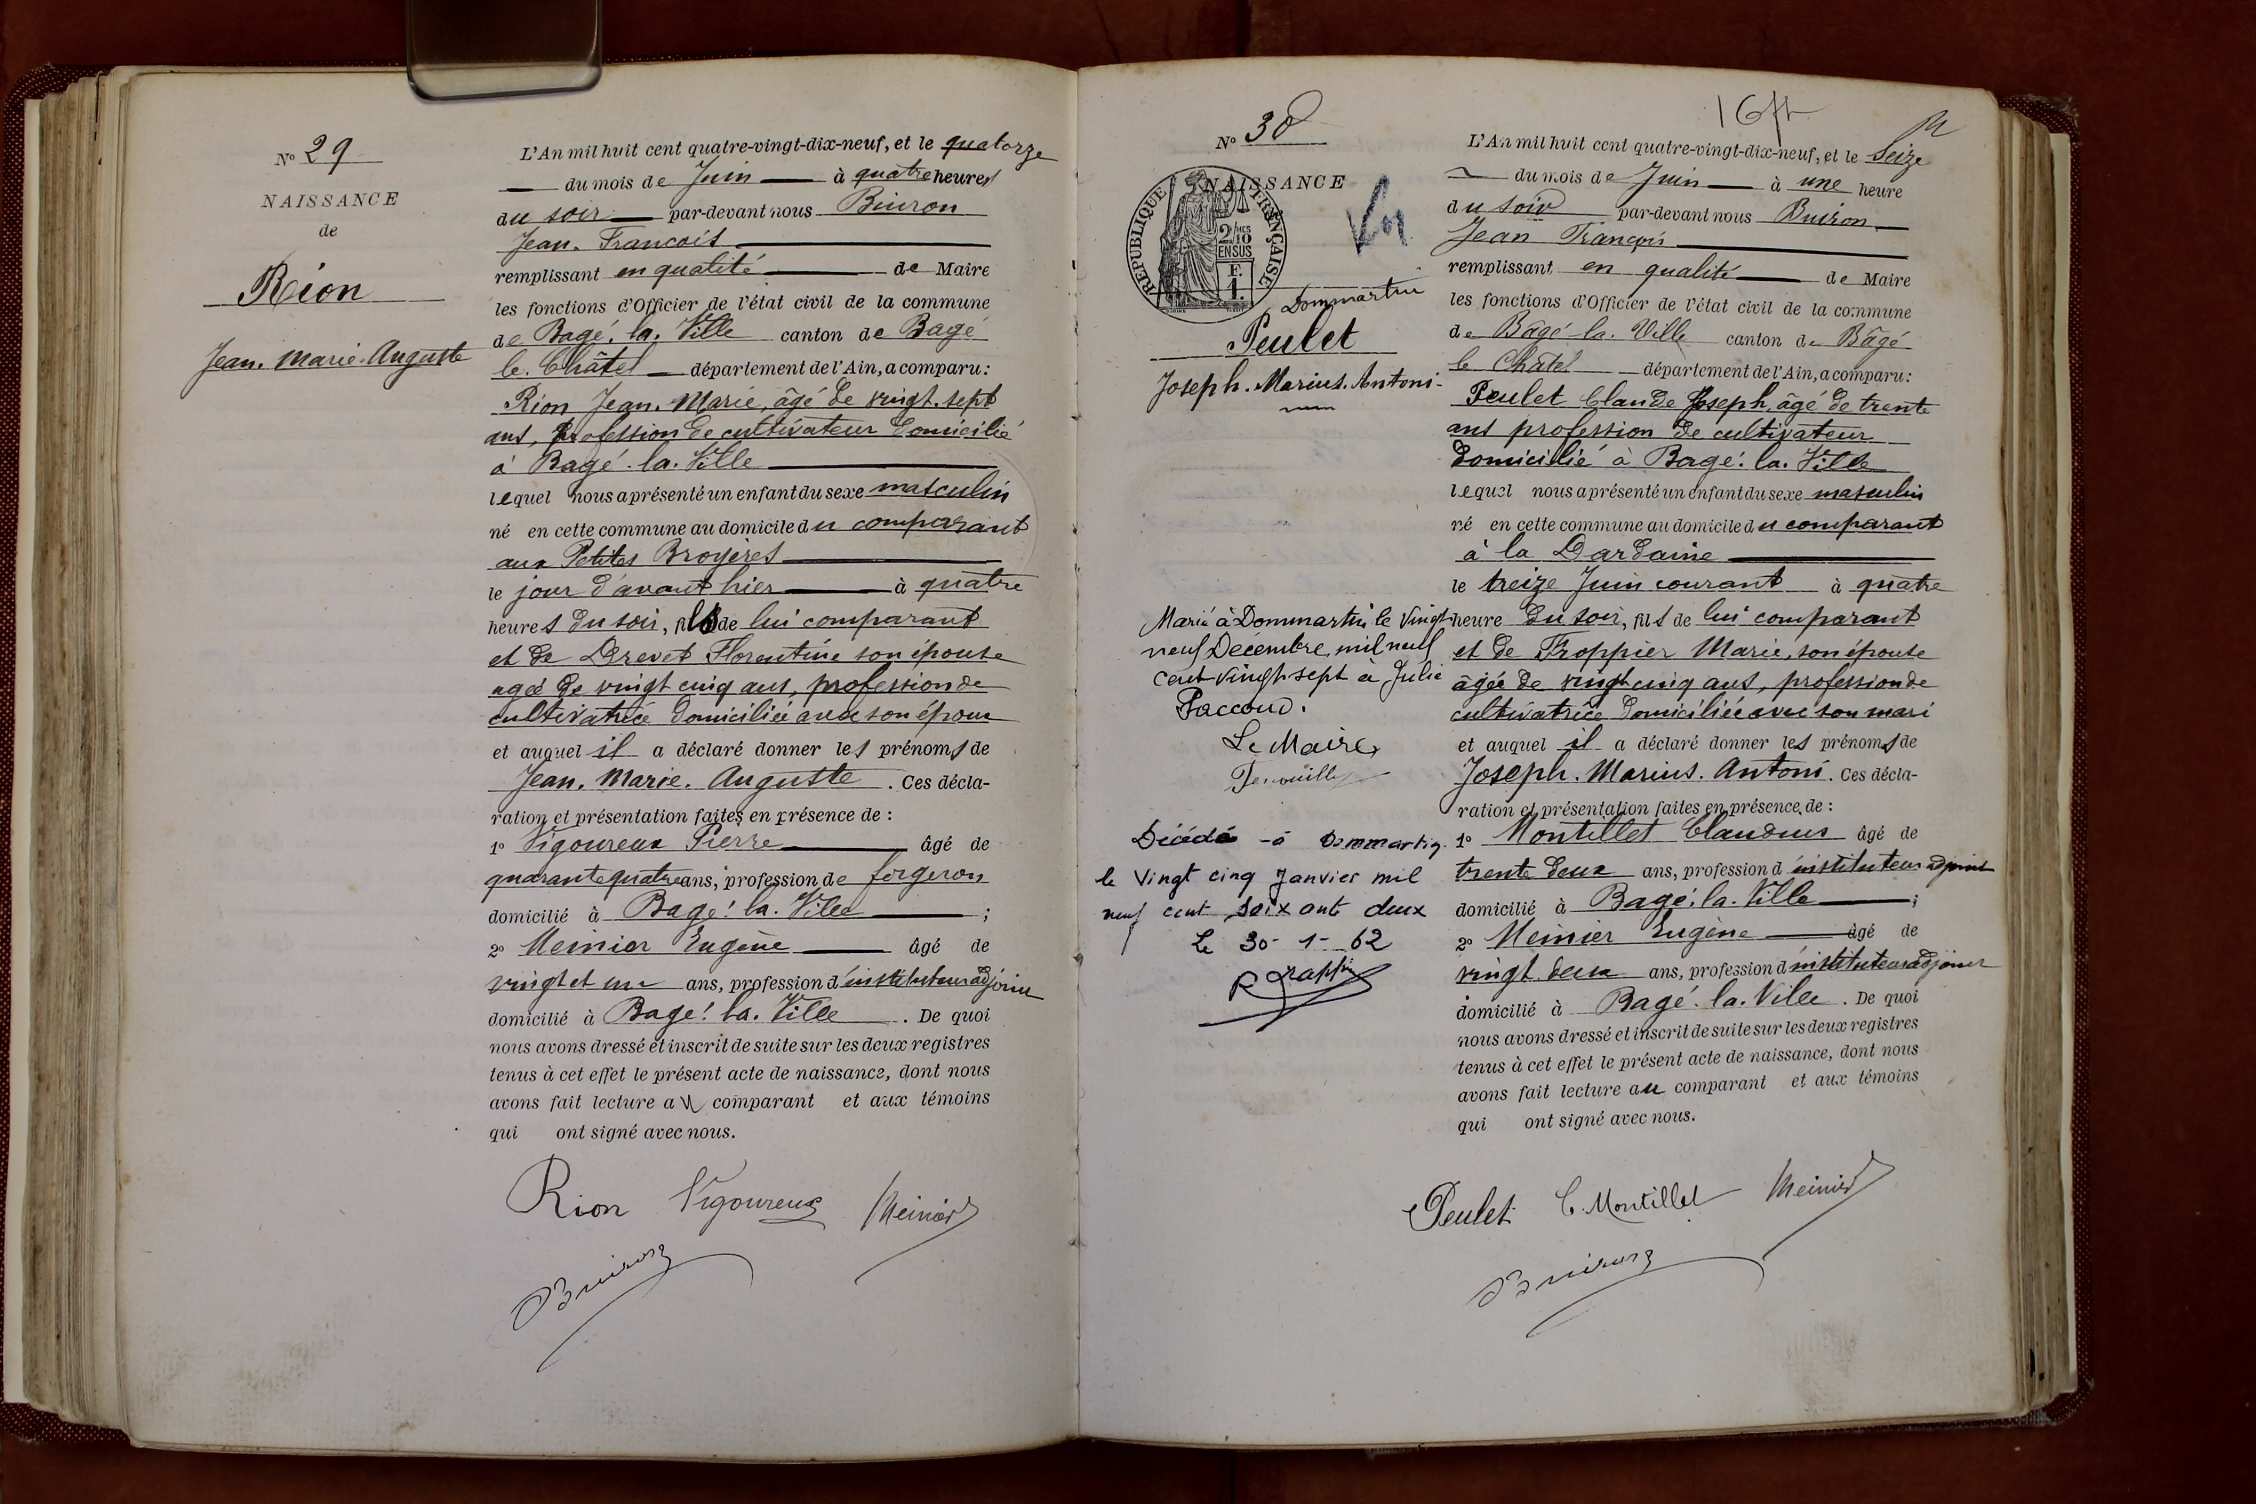 Nº 29
NAISSANCE
de
Rion
Jean. Marie. Auguste
L'An mil huit cent quatre-vingt-dix-neuf, et le quatorze
du mois de Juin à quatre heures
du soir par-devant nous Buiron
Jean. Francois
remplissant en qualité de Maire
les fonctions d'Officier de l'état civil de la commune
de Bagé. la. Ville canton de Bagé
le. Châtel département de l'Ain, a comparu :
Rion Jean. Marie, âgé de vingt. sept
ans, profession de cultivateur domicilié
à Bagé. la. Ville
lequel nous a présenté un enfant du sexe masculin
né en cette commune au domicile du comparant
aux Petites Broyères
le jour d'avant hier à quatre
heures du soir, fils de lui comparant
et de Drevet Florentine son épouse
agée de vingt cinq ans, profession de
cultivatrice domiciliée avec son époux
et auquel il a déclaré donner les prénoms de
Jean. Marie. Auguste. Ces décla-
ration et présentation faites en présence de :
1º Vigoureux Pierre âgé de
quarante quatre ans, profession de forgeron
domicilié à Bagé. la. Ville ;
2º Meinier Eugène âgé de
vingt et un ans, profession d'instituteur adjoint
domicilié à Bagé. la. Ville. De quoi
nous avons dressé et inscrit de suite sur les deux registres
tenus à cet effet le présent acte de naissance, dont nous
avons fait lecture au comparant et aux témoins
qui ont signé avec nous.
Rion Vigoureux Meinier
Buiron
Nº 30
NAISSANCE
RÉPUBLIQUE FRANÇAISE
2/10 EN SUS
F.
1.
Dommartin
Peulet
Joseph. Marius. Antoni-
Marié à Dommartin le vingt
neuf Décembre mil neuf
cent vingt-sept à Julie
Paccoud.
Le Maire
Décédé à Dommartin
le Vingt cinq Janvier mil
neuf cent soixante deux
Le 30-1-62
L'An mil huit cent quatre-vingt-dix-neuf, et le Seize
du mois de Juin à une heure
du soir par-devant nous Buiron
Jean François
remplissant en qualité de Maire
les fonctions d'Officier de l'état civil de la commune
de Bâgé la. Ville canton de Bâgé
le Châtel département de l'Ain, a comparu :
Peulet Claude Joseph, âgé de trente
ans profession de cultivateur
domicilié à Bagé. la. Ville
lequel nous a présenté un enfant du sexe masculin
né en cette commune au domicile du comparant
à la Dardaine
le treize Juin courant à quatre
heure du soir, fils de lui comparant
et de Froppier Marie, son épouse
âgée de vingt cinq ans, profession de
cultivatrice domiciliée avec son mari
et auquel il a déclaré donner les prénoms de
Joseph. Marius. Antoni. Ces décla-
ration et présentation faites en présence de :
1º Montillet Claudius âgé de
trente deux ans, profession d'instituteur adjoint
domicilié à Bagé. la. Ville ;
2º Meinier Eugène âgé de
vingt deux ans, profession d'instituteur adjoint
domicilié à Bagé. la. Ville. De quoi
nous avons dressé et inscrit de suite sur les deux registres
tenus à cet effet le présent acte de naissance, dont nous
avons fait lecture au comparant et aux témoins
qui ont signé avec nous.
Peulet C. Montillet Meinier
Buiron